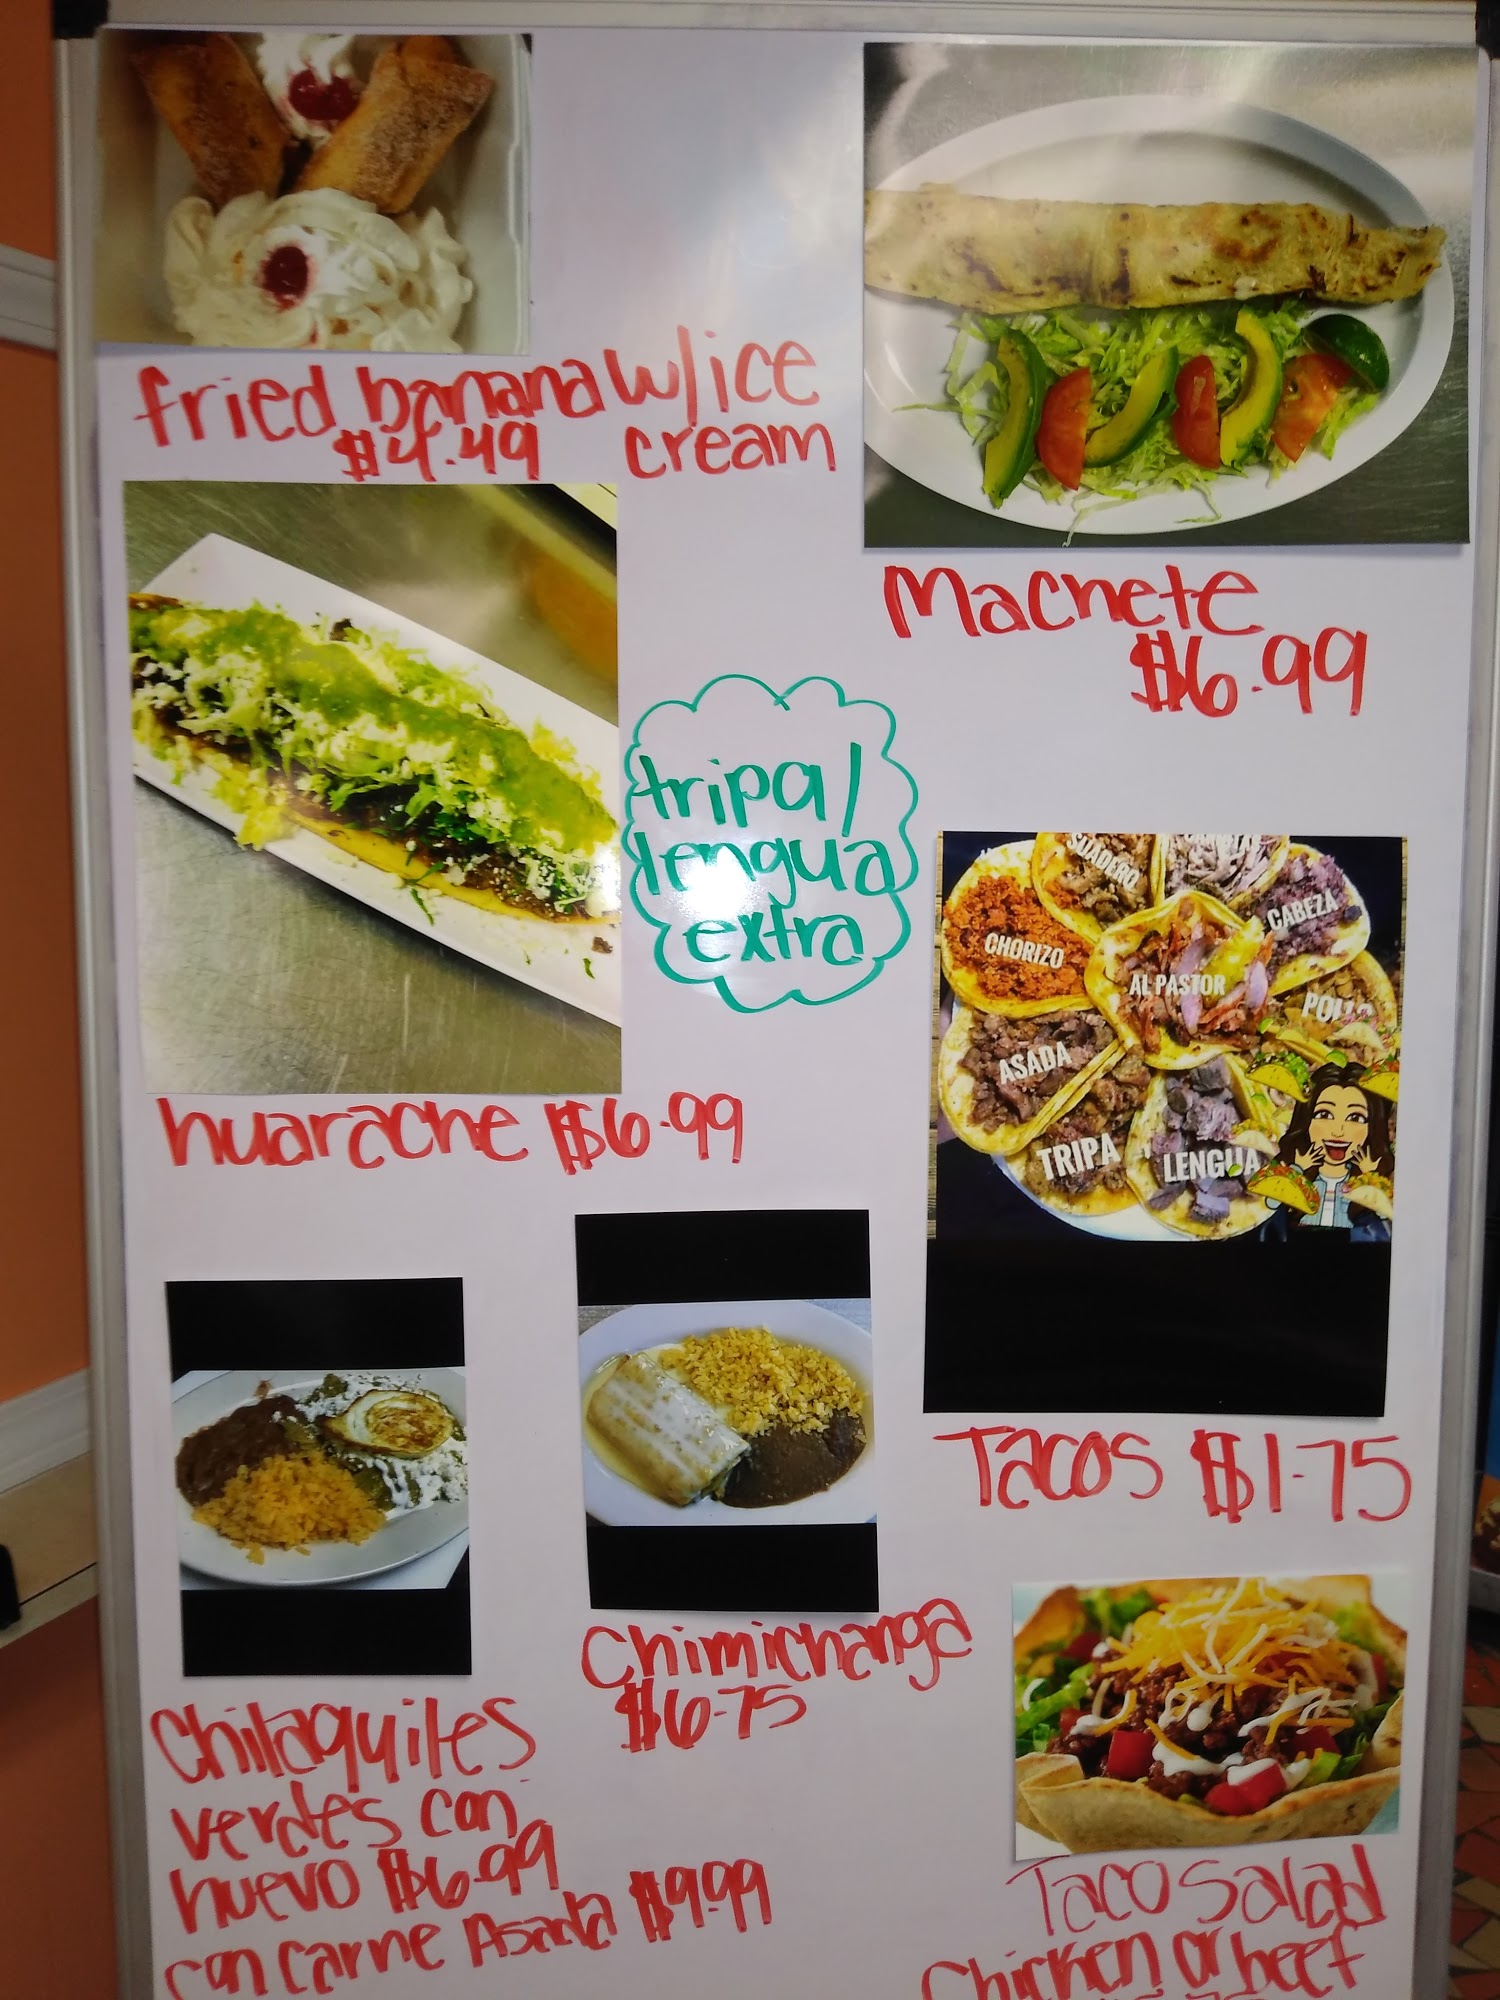 fried banana w/ice
$4.49 cream
Machete
$6.99
tripa/
lengua
extra
huarache $6.99
SUADERO
CABEZA
CHORIZO
AL PASTOR
POLLO
ASADA
TRIPA
LENGUA
Tacos $1.75
Chimichanga
$6.75
Chilaquiles
verdes con
huevo $6.99
con Carne Asada $9.99
Taco Salad
Chicken or beef